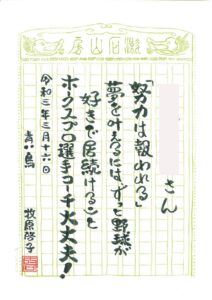 漱石山房
さん
「努力は報われる」
夢を叶えるにはずっと野球が
好きで居続けること
ホークスプロ選手コーチ大丈夫!
令和三年三月十六日
青い鳥
牧原啓子